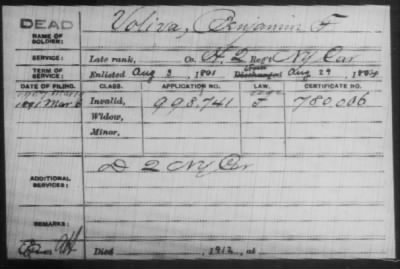 DEAD
NAME OF SOLDIER: Voliva, Benjamin F
SERVICE: Late rank, Co. A, 2 Reg't Ny Cav
TERM OF SERVICE: Enlisted Aug 3, 1861 Discharged Aug 29, 1864
DATE OF FILING. CLASS. APPLICATION NO. LAW. CERTIFICATE NO.
1891 Mar 6 Invalid, 998,741 780,086
Widow,
Minor.
ADDITIONAL SERVICES: D 2 Ny Cav
REMARKS:
Died , 1912, at